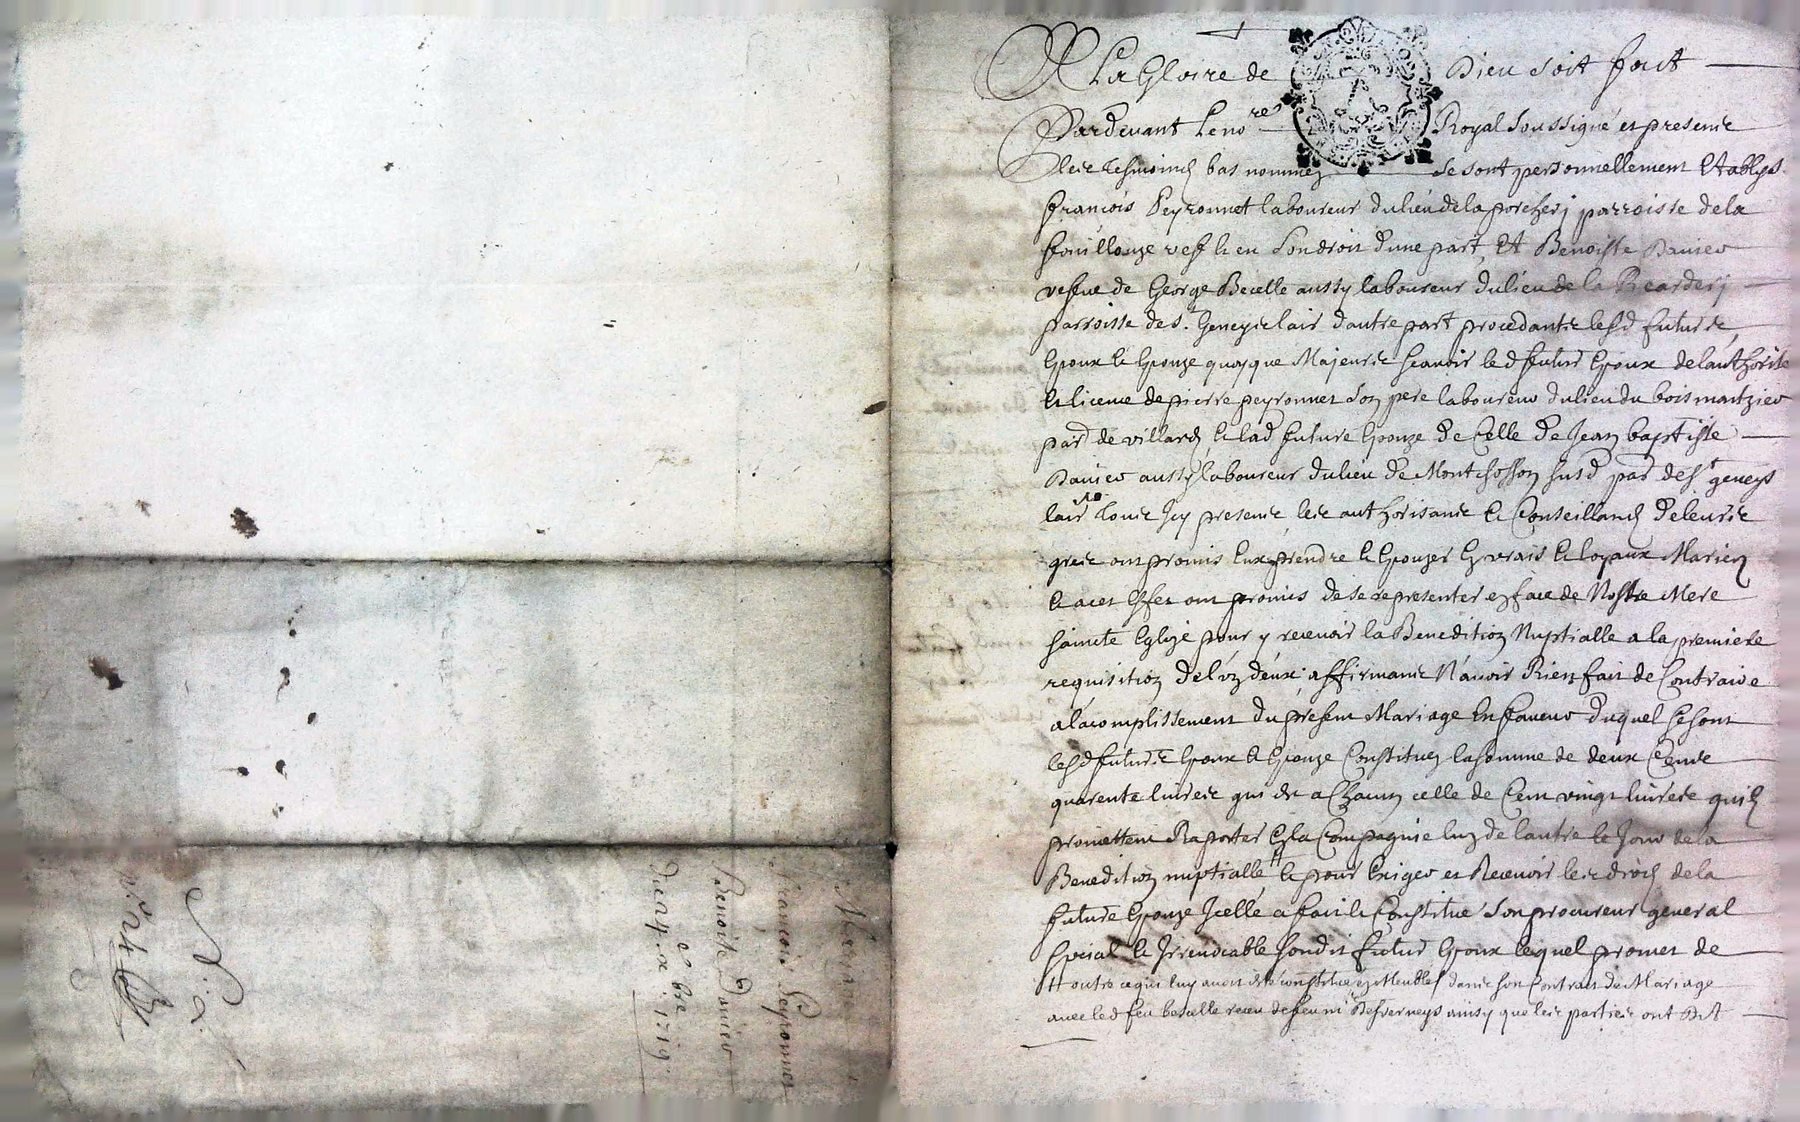 A La Gloire de Dieu soit fait
Pardevant Le no.re Royal soussigné et presents
les tesmoins bas nommez se sont personnellement Etablys
françois Peyronnet laboureur du lieu de la porchery parroisse de la
fouillouze vesf et en son droit dune part, Et Benoiste Danieo
vesfue de George Becelle aussy laboureur du lieu de la Rearderij
parroisse de St. Geneys lair dautre part procedants lesd futurs
Epoux et Epouze quoyque Majeurs scauoir led futur Epoux de lauthorite
et licence de pierre peyronnet son pere laboureur du lieu du bois montzieo
pard de villars et lad future Epouze de Celle de Jean baptiste
Danieo aussy laboureur du lieu de Montchosson susd pard de St geneys
lair tous Icy presents les authorisants et Conseillands de leurs
grez ont promis Eux prendre et Epouzer en vrais et loyaux Mariez
et a cet effet ont promis de se representer en face de Nostre Mere
saincte Eglize pour y receuoir la Benedition Nuptialle a la premiere
requisition de lun deux affirmants Nauoir Rien fait de Contraire
a lacomplissement du present Mariage En faueur duquel se sont
lesd futurs Epoux et Epouze Constituez la somme de deux Cents
quarente liures qui est a Chacun celle de Cent vingt liures quils
promettent Raporter En la Compagnie lun de lautre le Jour de la
Benedition nuptialle # et pour Exiger et Receuoir les droits de la
future Epouze Jcelle a fait et Constitué son procureur general
special et Irreuocable sondit futur Epoux lequel promet de
# outre ce qui luy auoit esté constitué en Meubles dans son Contrat de Mariage
auec led feu becelle receu de feu me Desverneys ainsy que les parties ont Dit
françois Peyronnet
Benoite Danieo
Du 24e xbre 1719
n.o 24